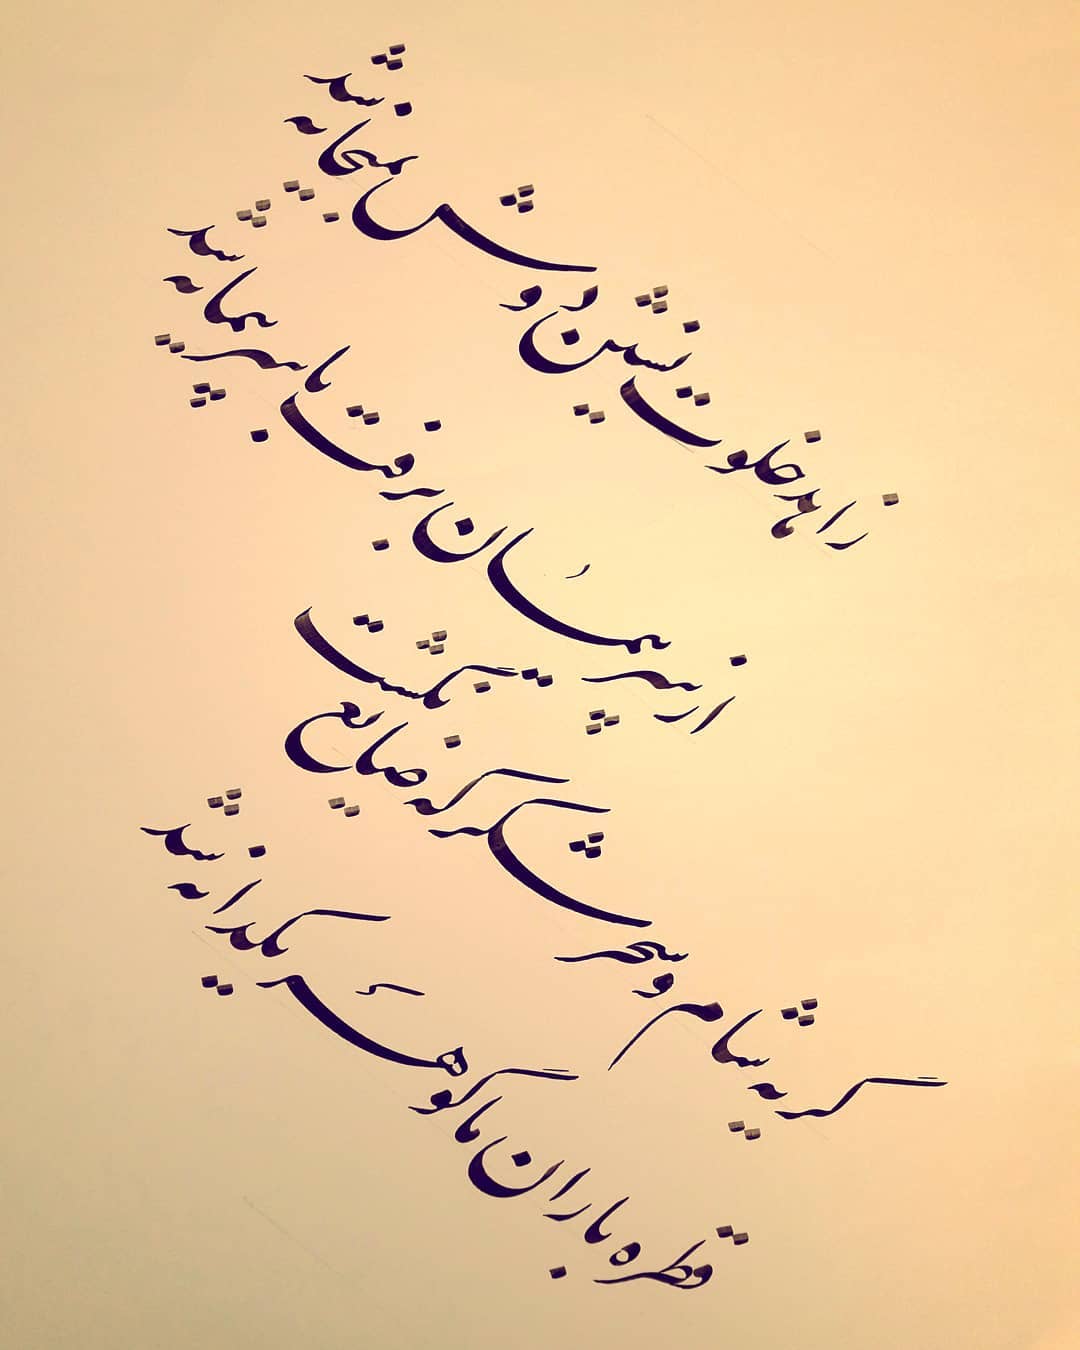 زاهد خلوت نشین دوش بمیخانه شد
از سر پیمان برفت با سر پیمانه شد
گریه شام و سحر شکر که ضایع نگشت
قطره باران ما گوهر یکدانه شد